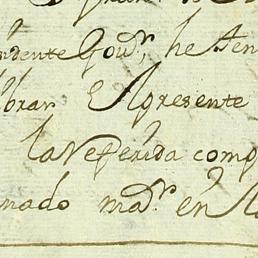 ndente Gov.r, he ten
brar El presente
la referida comp
nado mad.r en la